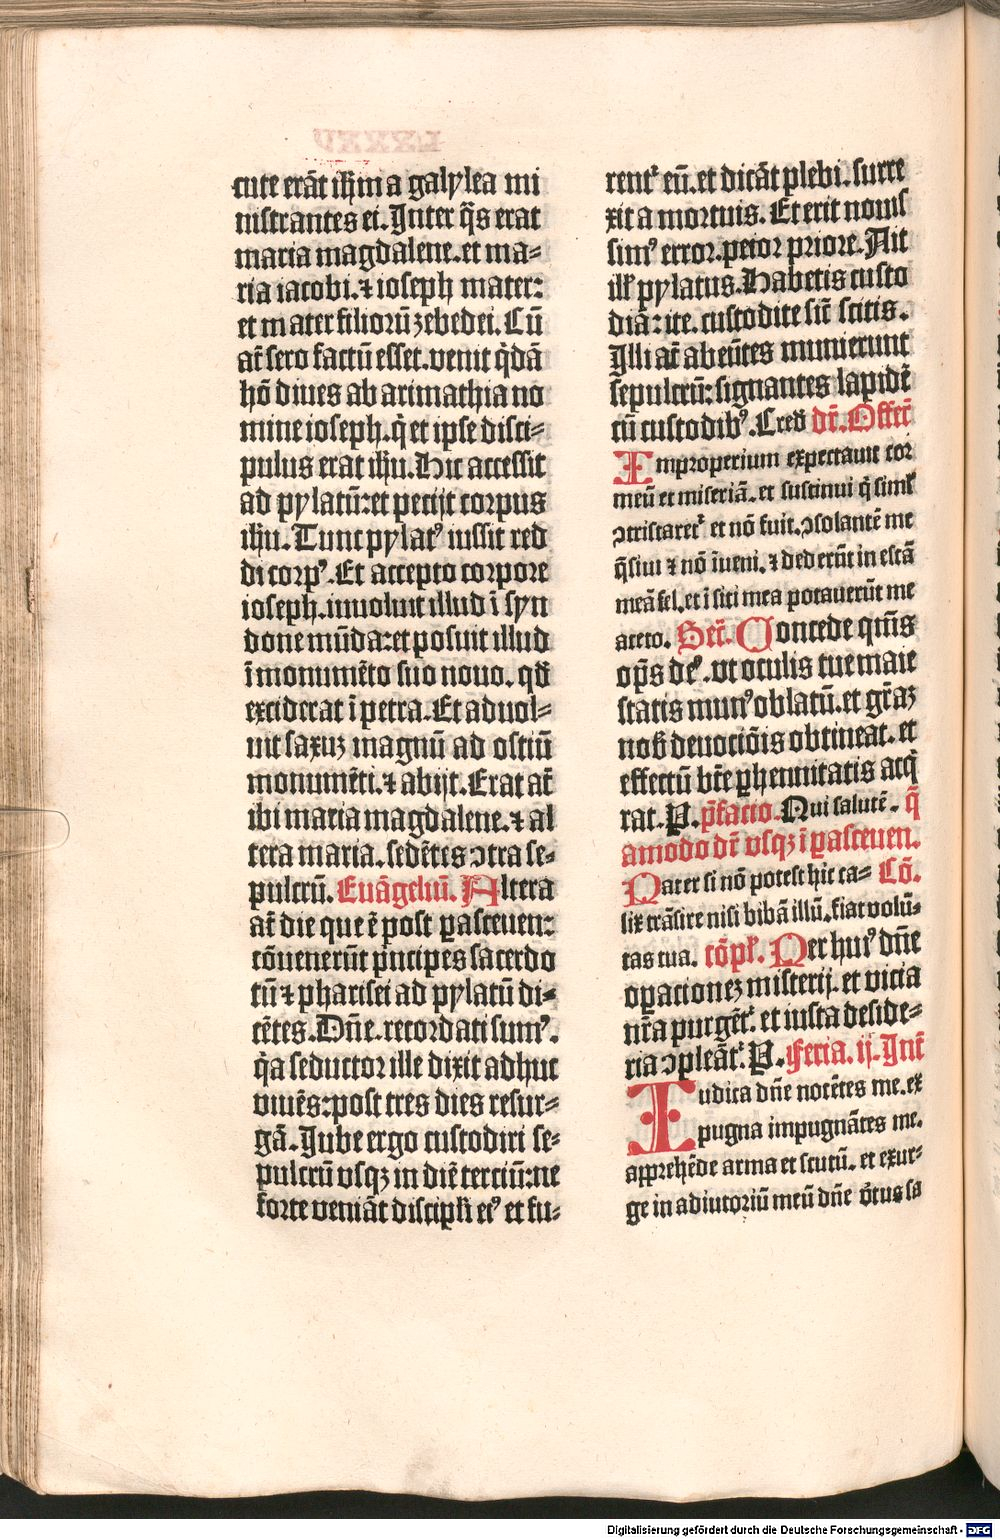 cute erāt ihm̄ a galylea mi
nistrantes ei. Inter q̄s erat
maria magdalene. et ma=
ria iacobi. ⁊ ioseph mater:
et mater filiorū zebedei. Cū
at̄ sero factū esset. venit q̄dā
hō diues ab arimathia no
mine ioseph. q̇ et ipse disci=
pulus erat ihu. Hic accessit
ad pylatū: et petijt corpus
ihu. Tunc pylatꝰ iussit red
di corpꝰ. Et accepto corpore
ioseph. inuoluit illud ī syn
done mūda: et posuit illud
ī monumēto suo nouo. qd̄
exciderat ī petra. Et aduol=
uit saxuꝫ magnū ad ostiū
monumēti. ⁊ abijt. Erat at̄
ibi maria magdalene. ⁊ al
tera maria. sedētes ↄtra se=
pulcrū. Euāgeliū. Altera
at̄ die que ē post ꝑasceuen:
cōuenerūt p̄ncipes sacerdo
tū ⁊ pharisei ad pylatū di=
cētes. Dn̄e. recordati sumꝰ.
q̇a seductor ille dixit adhuc
viuēs: post tres dies resur=
gā. Iube ergo custodiri se=
pulcrū vsqꝫ in diē terciū: ne
forte veniāt discipl̄i eiꝰ et fu=
rentᷣ eū. et dicāt plebi. surre
xit a mortuis. Et erit nouis
simꝰ error. peior priore. Ait
ill̄ pylatus. Habetis custo
diā: ite. custodite sic̄ scitis.
Illi at̄ abeūtes munierunt
sepulcrū: signantes lapidē
cū custodibꝰ. Cred̄ dr̄. Offer̄
Improperium expectauit cor
meū et miseriā. et sustinui q̇ siml̄
ↄtristaretᷣ et nō fuit. ↄsolantē me
q̄siui ⁊ nō īueni. ⁊ dederūt in escā
meā fel. et ī siti mea potauerūt me
aceto. Secr̄. Concede qm̄s
op̄s deꝰ. vt oculis tue maie
statis munꝰ oblatū. et gr̄aꝫ
nob̄ deuociōis obtineat. et
effectū bt̄e ꝑhennitatis acq̇
rat. P. p̄facio. Qui salutē. q̄
amodo dr̄ vsqꝫ ī ꝑasceuen.
Pater si nō potest hic ca= Cō.
lix trāsire nisi bibā illū. fiat volū=
tas tua. cōpl̄. Per huiꝰ dn̄e
oꝑacioneꝫ misterij. et vicia
nr̄a purgētᷣ. et iusta deside=
ria ↄpleātᷣ. P. Feria. ij. Int̄
Iudica dn̄e nocētes me. ex
pugna impugnātes me.
apprehēde arma et scutū. et exur=
ge in adiutoriū meū dn̄e v̄tus sa
Digitalisierung gefördert durch die Deutsche Forschungsgemeinschaft - DFG